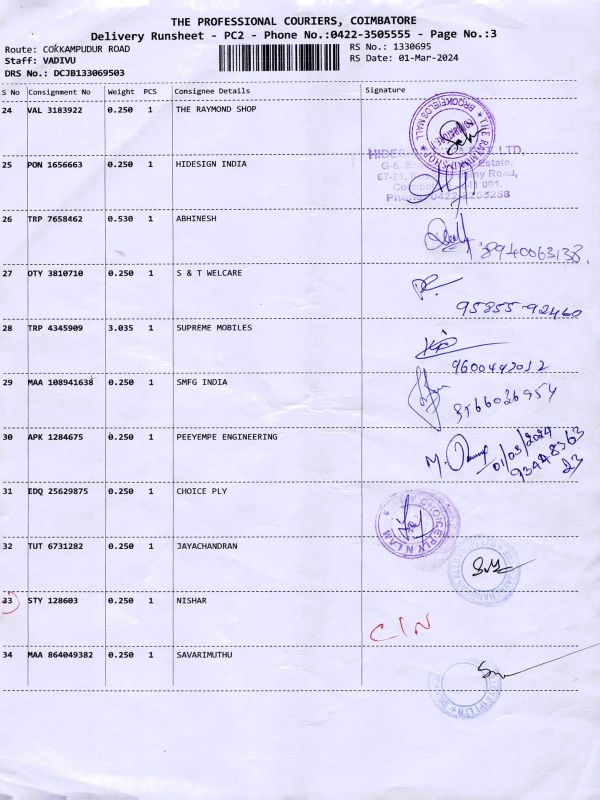 THE PROFESSIONAL COURIERS, COIMBATORE
Delivery Runsheet - PC2 - Phone No.:0422-3505555 - Page No.:3
Route: COKKAMPUDUR ROAD
RS No.: 1330695
Staff: VADIVU
RS Date: 01-Mar-2024
DRS No.: DCJB133069503
S No Consignment No Weight PCS Consignee Details Signature
24 VAL 3183922 0.250 1 THE RAYMOND SHOP
THE RAYMOND SHOP BROOKFIELDS MALL
25 PON 1656663 0.250 1 HIDESIGN INDIA
LTD.
Estate.
67-71, Road,
001.
Phone
26 TRP 7658462 0.530 1 ABHINESH
8940063138.
27 OTY 3810710 0.250 1 S & T WELCARE
95855-92460
28 TRP 4345909 3.035 1 SUPREME MOBILES
9600492012
29 MAA 108941638 0.250 1 SMFG INDIA
30 APK 1284675 0.250 1 PEEYEMPE ENGINEERING
01/03/2024
31 EDQ 25629875 0.250 1 CHOICE PLY
CHOICE PLY N LAM
32 TUT 6731282 0.250 1 JAYACHANDRAN
33 STY 128603 0.250 1 NISHAR
C/N
34 MAA 864049382 0.250 1 SAVARIMUTHU